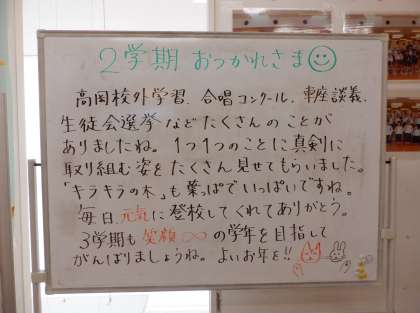 2学期 おつかれさま
高岡校外学習、合唱コンクール、車座談義、
生徒会選挙などたくさんのことが
ありましたね。1つ1つのことに真剣に
取り組む姿をたくさん見せてもらいました。
「キラキラの木」も葉っぱでいっぱいですね。
毎日、元気に登校してくれてありがとう。
3学期も笑顔∞の学年を目指して
がんばりましょうね。よいお年を!!